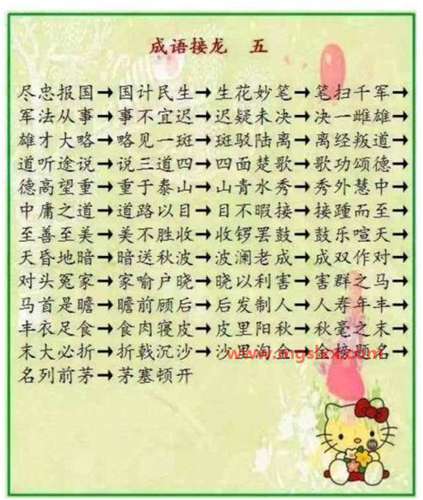 成语接龙 五
尽忠报国→国计民生→生花妙笔→笔扫千军→
军法从事→事不宜迟→迟疑未决→决一雌雄→
雄才大略→略见一斑→斑驳陆离→离经叛道→
道听途说→说三道四→四面楚歌→歌功颂德→
德高望重→重于泰山→山青水秀→秀外慧中→
中庸之道→道路以目→目不暇接→接踵而至→
至善至美→美不胜收→收锣罢鼓→鼓乐喧天→
天昏地暗→暗送秋波→波澜老成→成双作对→
对头冤家→家喻户晓→晓以利害→害群之马→
马首是瞻→瞻前顾后→后发制人→人寿年丰→
丰衣足食→食肉寝皮→皮里阳秋→秋毫之末→
末大必折→折戟沉沙→沙里淘金→金榜题名→
名列前茅→茅塞顿开